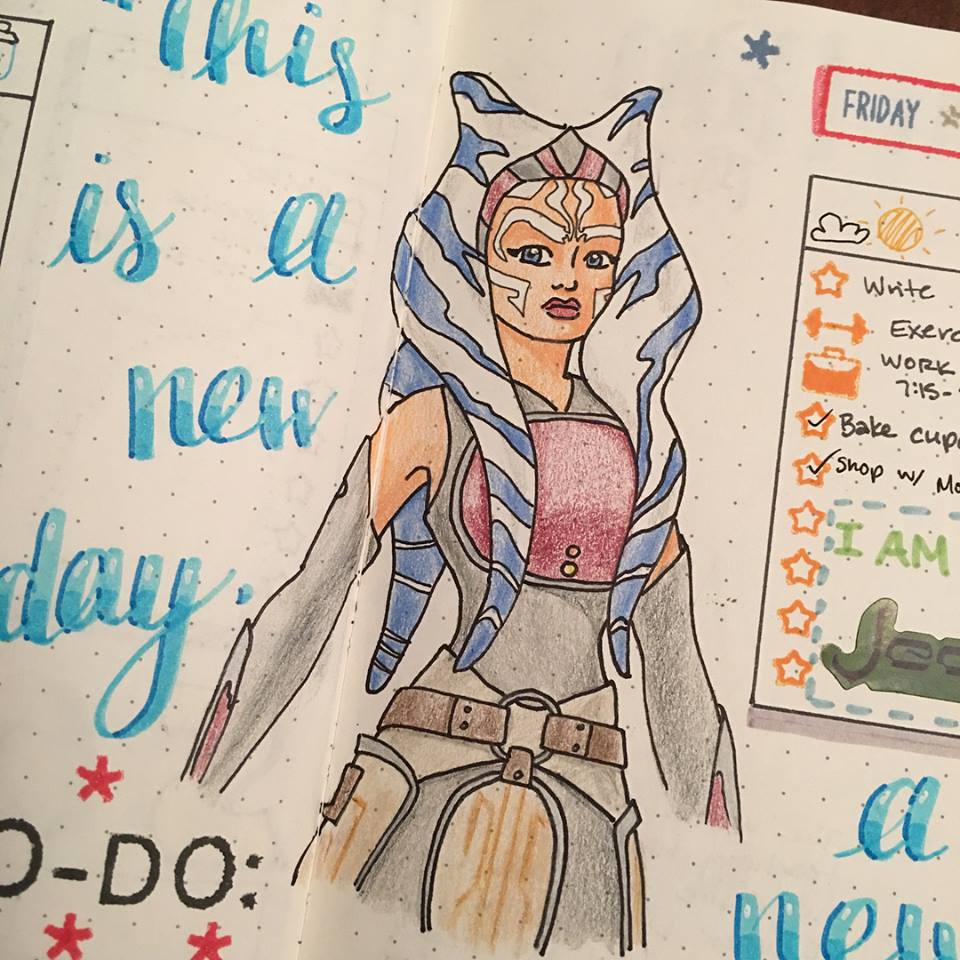 "This
is a
new
day.
O-DO:
FRIDAY
Write
Exerc
WORK
7:15-
Bake cup
Shop w/ Mo
I AM
a
new